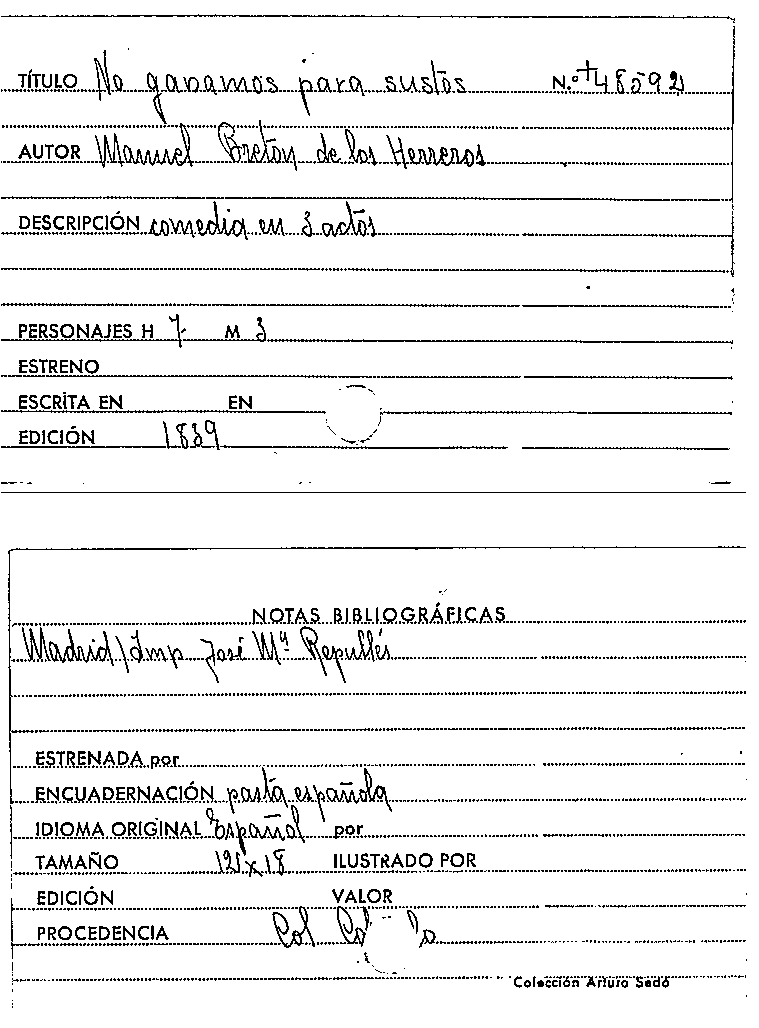 TÍTULO No ganamos para sustos N.º +48592
AUTOR Manuel Breton de los Herreros
DESCRIPCIÓN comedia en 3 actos
PERSONAJES H 7 M 3
ESTRENO
ESCRITA EN EN
EDICIÓN 1839
NOTAS BIBLIOGRÁFICAS
Madrid/Imp José Mª Repullés
ESTRENADA por
ENCUADERNACIÓN pasta española
IDIOMA ORIGINAL Español por
TAMAÑO 12x18 ILUSTRADO POR
EDICIÓN VALOR
PROCEDENCIA Col
Colección Arturo Sedó